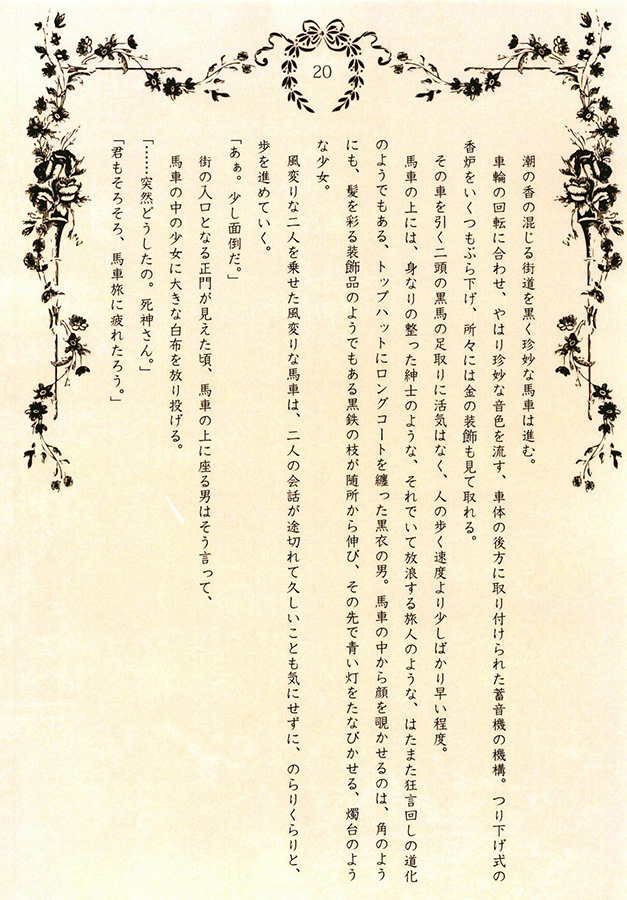 20
潮の香の混じる街道を黒く珍妙な馬車は進む。
車輪の回転に合わせ、やはり珍妙な音色を流す、車体の後方に取り付けられた蓄音機の機構。つり下げ式の
香炉をいくつもぶら下げ、所々には金の装飾も見て取れる。
その車を引く二頭の黒馬の足取りに活気はなく、人の歩く速度より少しばかり早い程度。
馬車の上には、身なりの整った紳士のような、それでいて放浪する旅人のような、はたまた狂言回しの道化
のようでもある、トップハットにロングコートを纏った黒衣の男。馬車の中から顔を覗かせるのは、角のよう
にも、髪を彩る装飾品のようでもある黒鉄の枝が随所から伸び、その先で青い灯をたなびかせる、燭台のよう
な少女。
風変りな二人を乗せた風変りな馬車は、二人の会話が途切れて久しいことも気にせずに、のらりくらりと、
歩を進めていく。
「あぁ。少し面倒だ。」
街の入口となる正門が見えた頃、馬車の上に座る男はそう言って、
馬車の中の少女に大きな白布を放り投げる。
「……突然どうしたの。死神さん。」
「君もそろそろ、馬車旅に疲れたろう。」